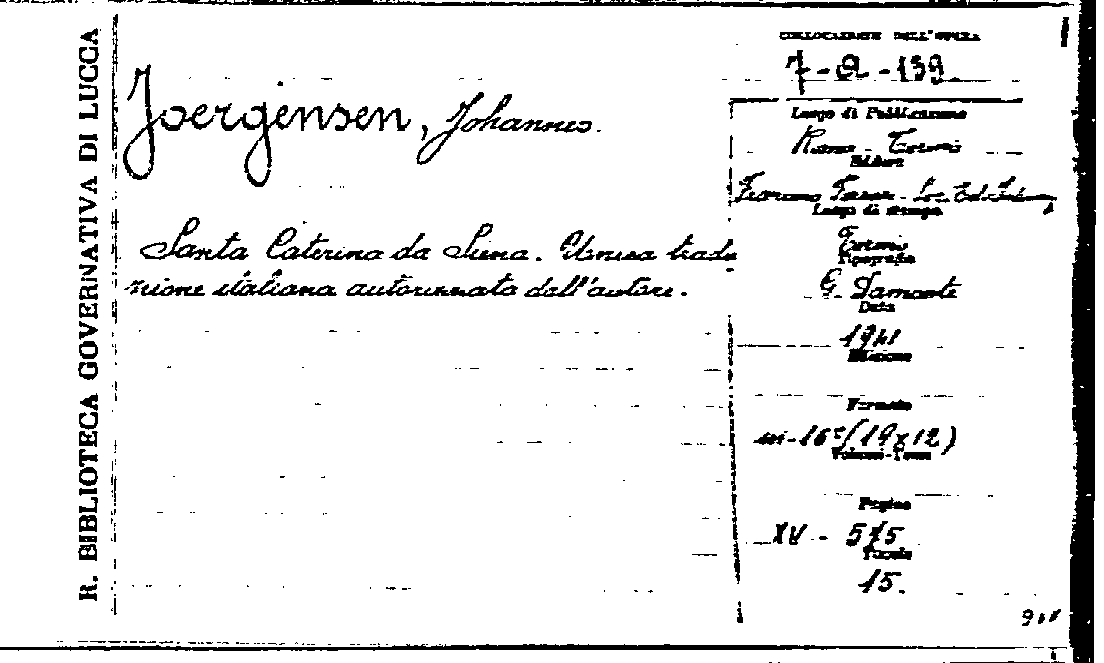 R. BIBLIOTECA GOVERNATIVA DI LUCCA
Joergensen, Johannes.
Santa Caterina da Siena. Unica tradu
zione italiana autorizzata dall'autore.
COLLOCAZIONE DELL'OPERA
7-
-139
Luogo di Pubblicazione
Roma - Torino
Editore
Luogo di stampa
Torino
Tipografia
G.
Data
1941
Edizione
Formato
in-16° (19x12)
Volumi-Tomi
Pagine
XV - 575
Tavole
15.